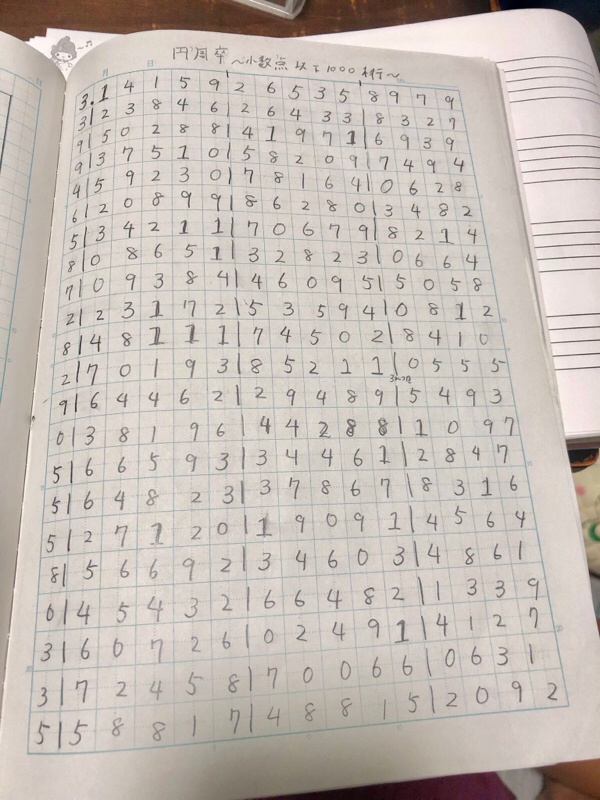 月 日
円周率 ~小数点以下1000桁~
3.1 4 1 5 9|2 6 5 3 5|8 9 7 9
3|2 3 8 4 6|2 6 4 3 3|8 3 2 7
9|5 0 2 8 8|4 1 9 7 1|6 9 3 9
9|3 7 5 1 0|5 8 2 0 9|7 4 9 4
4|5 9 2 3 0|7 8 1 6 4|0 6 2 8
6|2 0 8 9 9|8 6 2 8 0|3 4 8 2
5|3 4 2 1 1|7 0 6 7 9|8 2 1 4
8|0 8 6 5 1|3 2 8 2 3|0 6 6 4
7|0 9 3 8 4|4 6 0 9 5|5 0 5 8
2|2 3 1 7 2|5 3 5 9 4|0 8 1 2
8|4 8 1 1 1|7 4 5 0 2|8 4 1 0
2|7 0 1 9 3|8 5 2 1 1|0 5 5 5
9|6 4 4 6 2|2 9 4 8 9|5 4 9 3
0|3 8 1 9 6|4 4 2 8 8|1 0 9 7
5|6 6 5 9 3|3 4 4 6 1|2 8 4 7
5|6 4 8 2 3|3 7 8 6 7|8 3 1 6
5|2 7 1 2 0|1 9 0 9 1|4 5 6 4
8|5 6 6 9 2|3 4 6 0 3|4 8 6 1
0|4 5 4 3 2|6 6 4 8 2|1 3 3 9
3|6 0 7 2 6|0 2 4 9 1|4 1 2 7
3|7 2 4 5 8|7 0 0 6 6|0 6 3 1
5|5 8 8 1 7|4 8 8 1 5|2 0 9 2